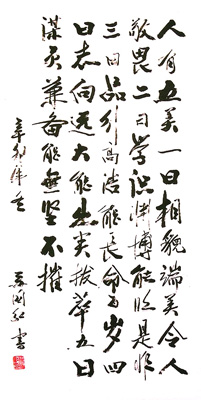 人有五美一曰相貌端美令人
敬畏二曰学识渊博能照是非
三曰品引高洁能长命百岁四
曰志向远大能出类拔萃五曰
谋勇兼备能無坚不摧
辛卯
书